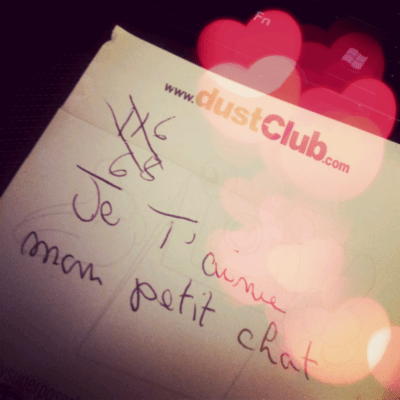 Fn
www.dustClub.com
Je T'aime
mon petit chat